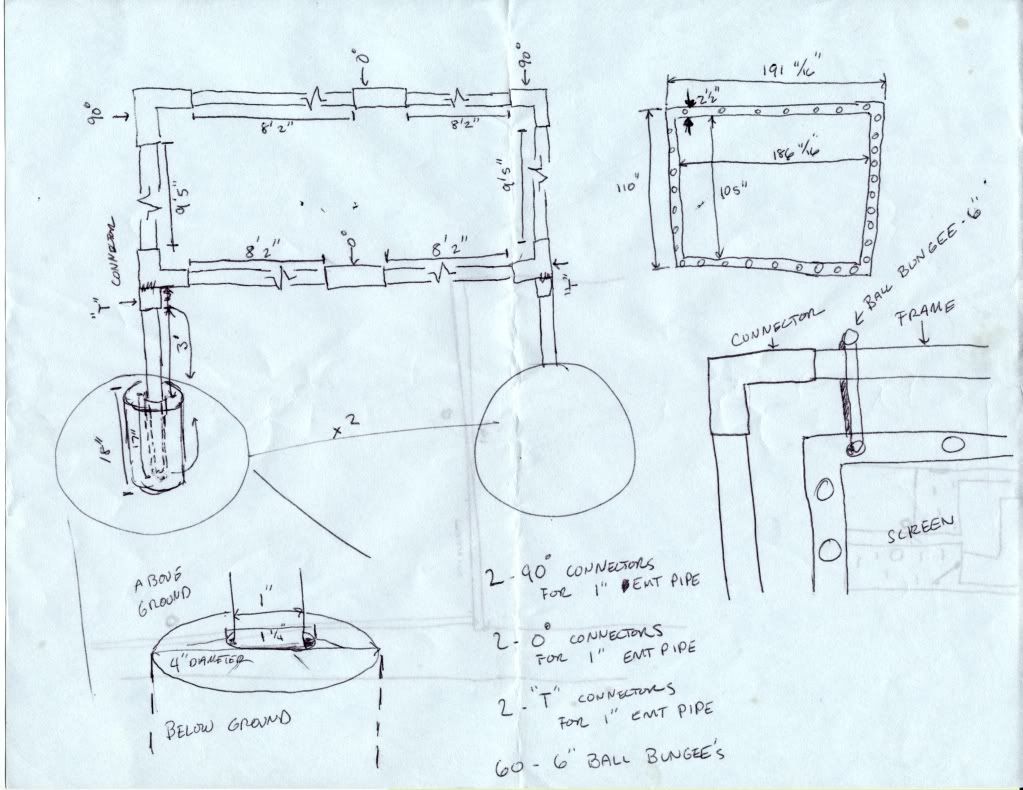 0°
90°
90°
8'2"
8'2"
9'5"
9'5"
8'2"
0°
8'2"
"T"
CONNECTOR
"T"
3'
18"
17"
x 2
ABOVE
GROUND
1"
1 1/4"
4" DIAMETER
BELOW GROUND
191 11/16"
2 1/2"
186 11/16"
110"
105"
BALL BUNGEE - 6"
CONNECTOR
FRAME
SCREEN
2 - 90° CONNECTORS
FOR 1" EMT PIPE
2 - 0° CONNECTORS
FOR 1" EMT PIPE
2 - "T" CONNECTORS
FOR 1" EMT PIPE
60 - 6" BALL BUNGEE'S